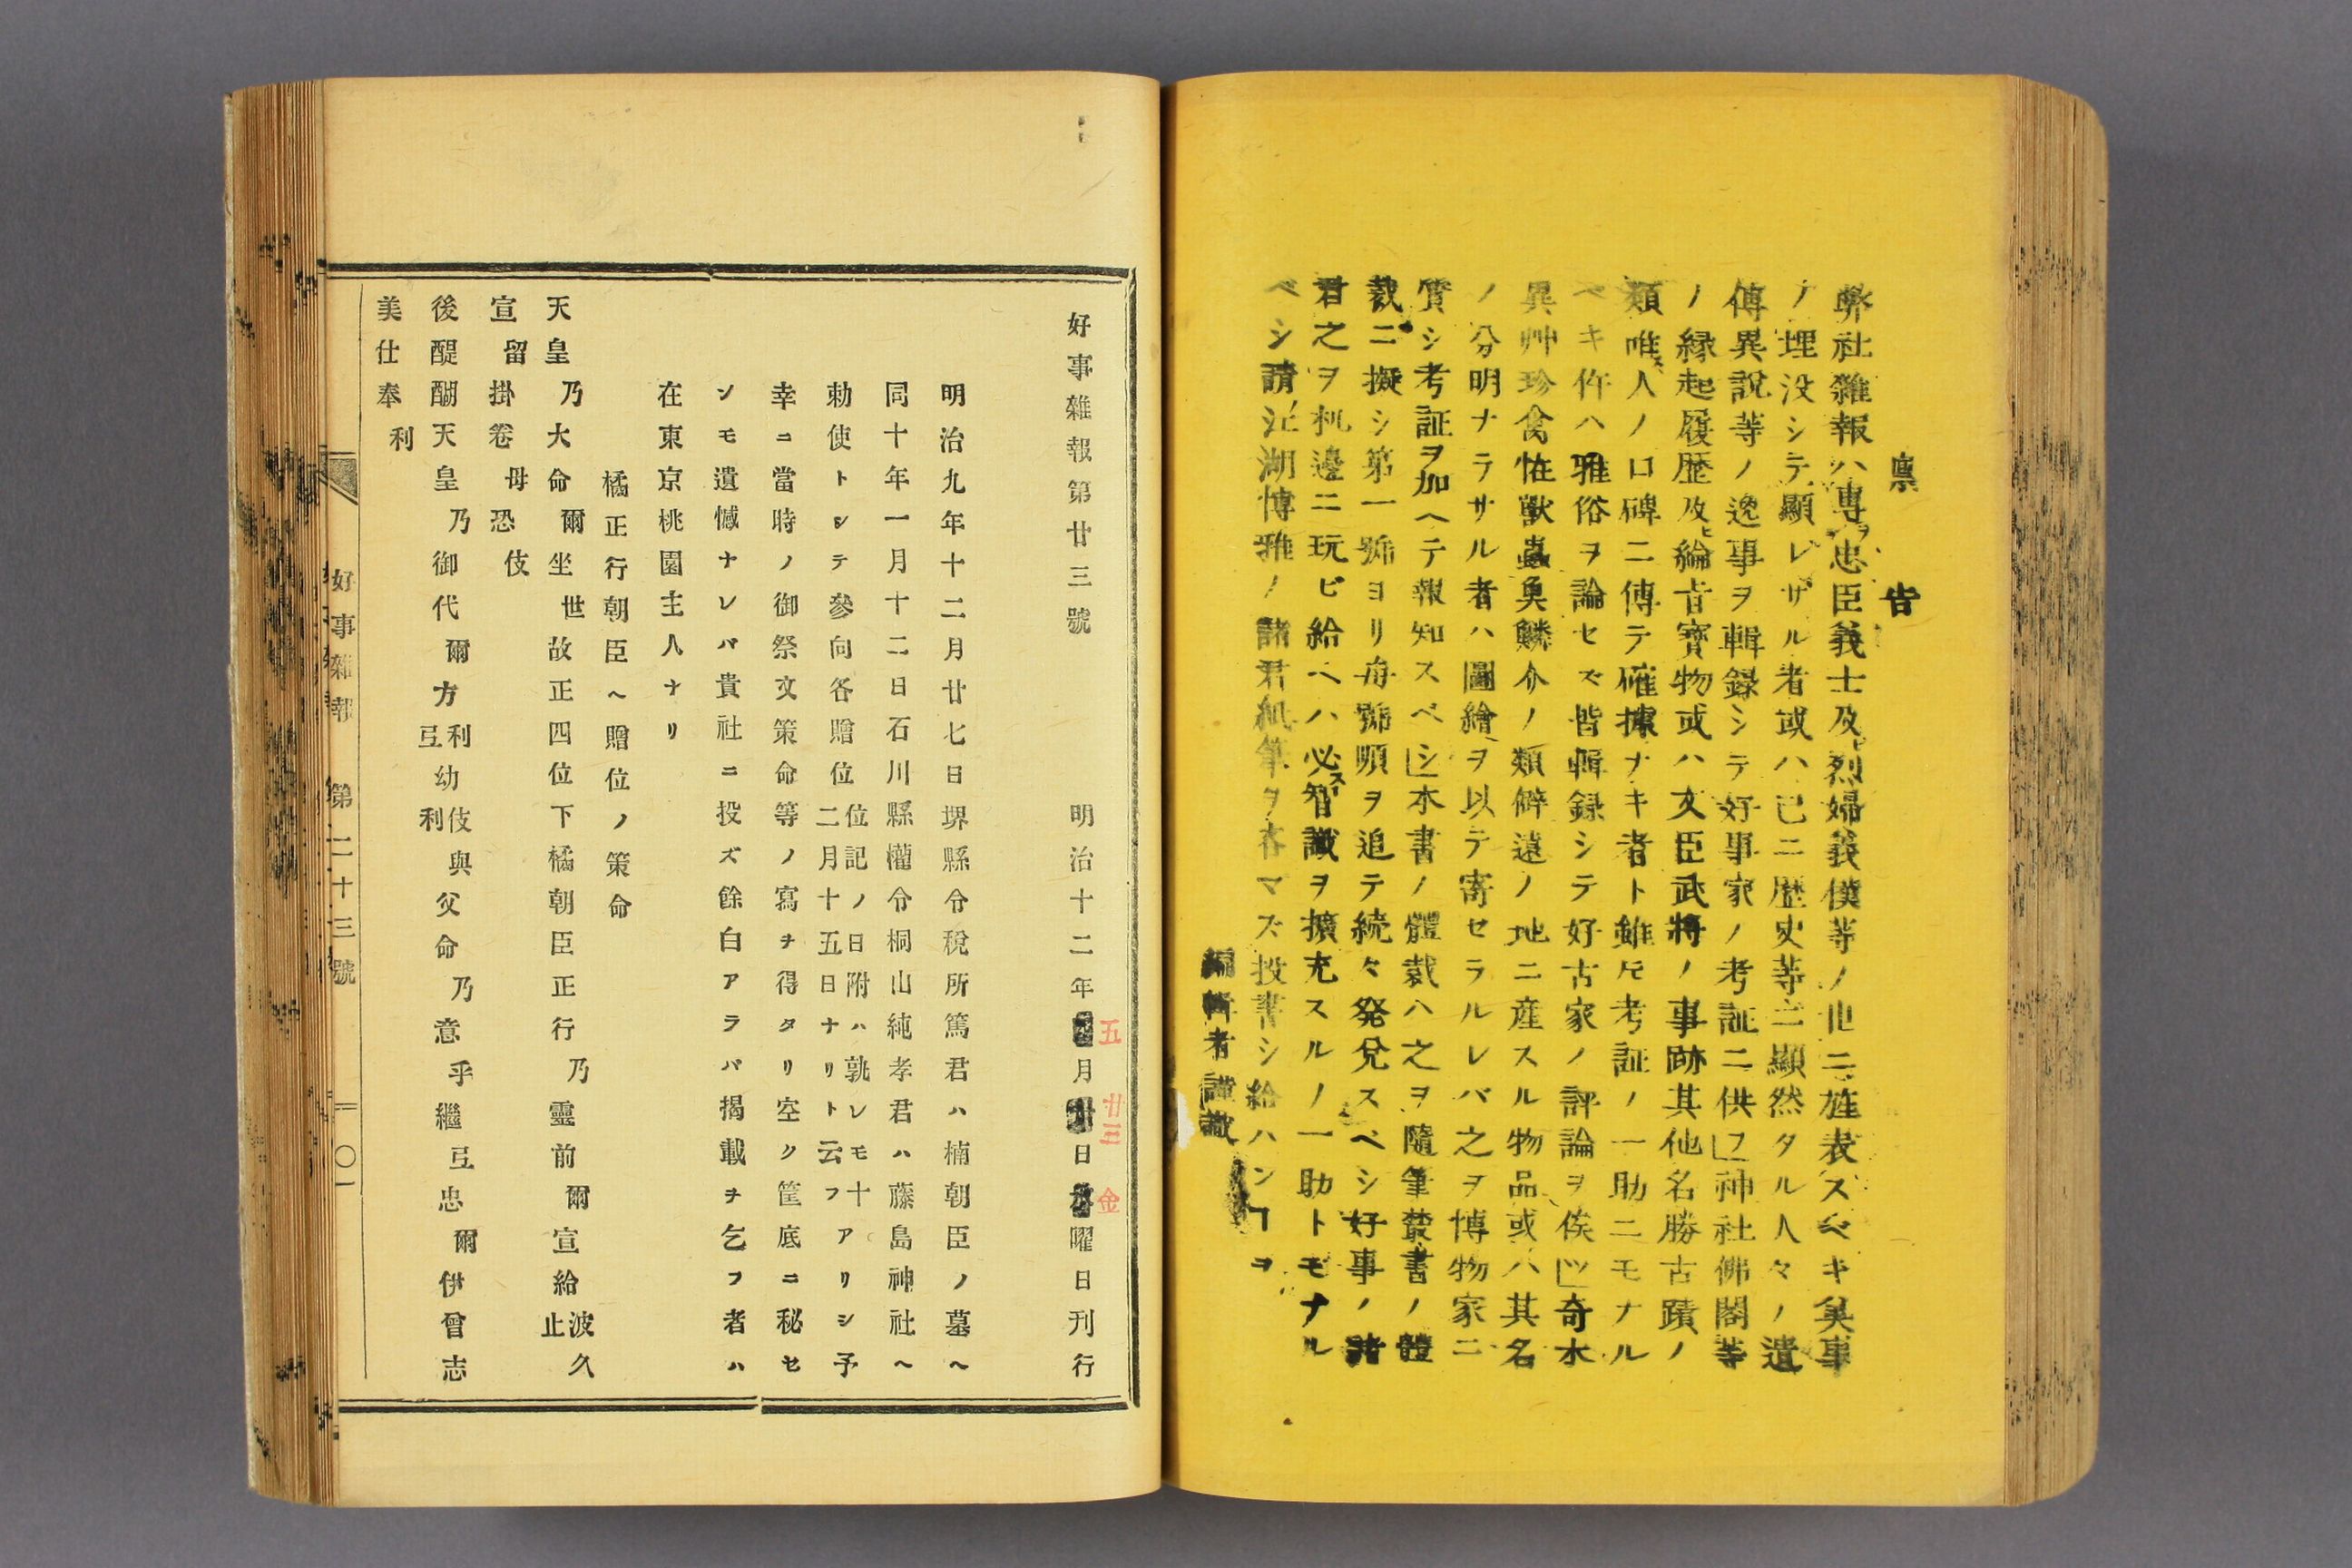 稟告
弊社雜報ハ專ヲ忠臣義士及ヒ烈婦義僕等ノ世ニ旌表スベキ美事
ノ埋没シテ顯レザル者或ハ已ニ歴史等ニ顯然タル人々ノ遺
傳異說等ノ逸事ヲ輯録シテ好事家ノ考証ニ供フ」神社佛閣等
ノ縁起履歴及ヒ綸旨寶物或ハ文臣武將ノ事跡其他名勝古蹟ノ
類唯人ノ口碑ニ傳テ確據ナキ者ト雖𪜈考証ノ一助ニモナル
ベキ件ハ雅俗ヲ論セズ皆輯録シテ好古家ノ評論ヲ俟ツ」奇木
異艸珍禽恠獸蟲魚鱗介ノ類僻遠ノ地ニ産スル物品或ハ其名
ノ分明ナラサル者ハ圖繪ヲ以テ寄セラルレバ之ヲ博物家ニ
質シ考証ヲ加ヘテ報知スベシ」本書ノ體裁ハ之ヲ隨筆叢書ノ體
裁ニ擬シ第一號ヨリ毎號順ヲ追テ続々発兌スベシ好事ノ諸
君之ヲ机邊ニ玩ビ給ヘハ必ス智識ヲ擴充スルノ一助トモナル
ベシ請江湖博雅ノ諸君紙筆ヲ吝マズ投書シ給ハンヿヲ
編輯者謹識
好事雜報第廿三號
明治十二年 月 日 曜日刊行
五 廿三 金
明治九年十二月廿七日堺縣令稅所篤君ハ楠朝臣ノ墓ヘ
同十年一月十二日石川縣權令桐山純孝君ハ藤島神社ヘ
勅使トシテ參向各贈位位記ノ日附ハ孰レモ十二月十五日ナリト云フアリシ予
幸ニ當時ノ御祭文策命等ノ寫ヲ得タリ空ク筐底ニ秘セ
ンモ遺憾ナレバ貴社ニ投ズ餘白アラバ揭載ヲ乞フ者ハ
在東京桃園主人ナリ
橘正行朝臣ヘ贈位ノ策命
天皇乃大命爾坐世故正四位下橘朝臣正行乃靈前爾宣給波久止
宣留掛卷母恐伎
後醍醐天皇乃御代爾方利弖幼伎與利父命乃意乎繼弖忠爾伊曾志
美仕奉利
好事雜報 第二十三號 二〇一